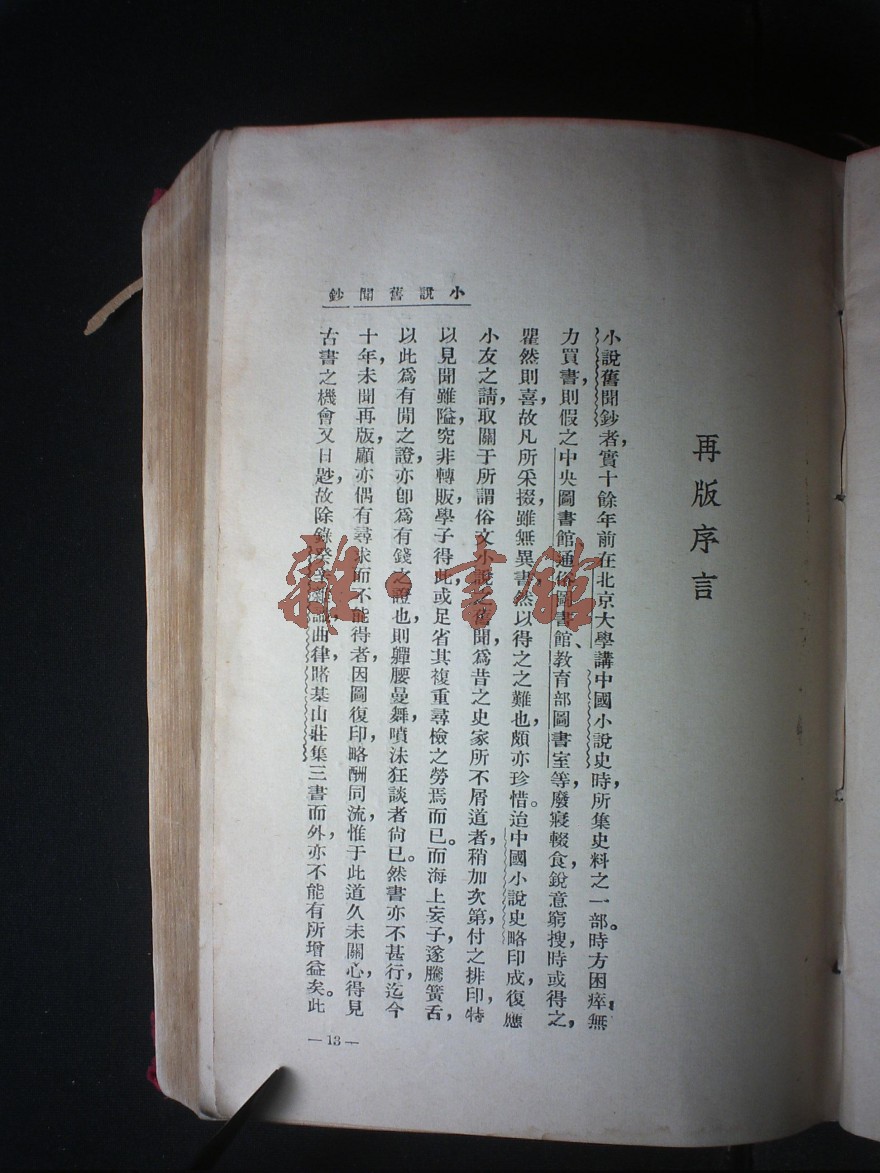 再版序言
小說舊聞鈔者，實十餘年前在北京大學講中國小說史時，所集史料之一部。時方困瘁，無
力買書，則假之中央圖書館、通俗圖書館、教育部圖書室等，廢寢輟食，銳意窮搜，時或得之，
瞿然則喜，故凡所采掇，雖無異書，然以得之之難也，頗亦珍惜。迨中國小說史略印成，復應
小友之請，取關于所謂俗文小說之舊聞，爲昔之史家所不屑道者，稍加次第，付之排印，特
以見聞雖隘，究非轉販，學子得此，或足省其複重尋檢之勞焉而已。而海上妄子，遂騰簧舌，
以此爲有閒之證，亦卽爲有錢之證也，則軃腰曼舞，噴沫狂談者尙已。然書亦不甚行，迄今
十年，未聞再版，顧亦偶有尋求而不能得者，因圖復印，略酬同流，惟于此道久未關心，得見
古書之機會又日尟，故除錄癸辛雜識，曲律，賭棊山莊集三書而外，亦不能有所增益矣。此
小說舊聞鈔
—13—
雜·書館